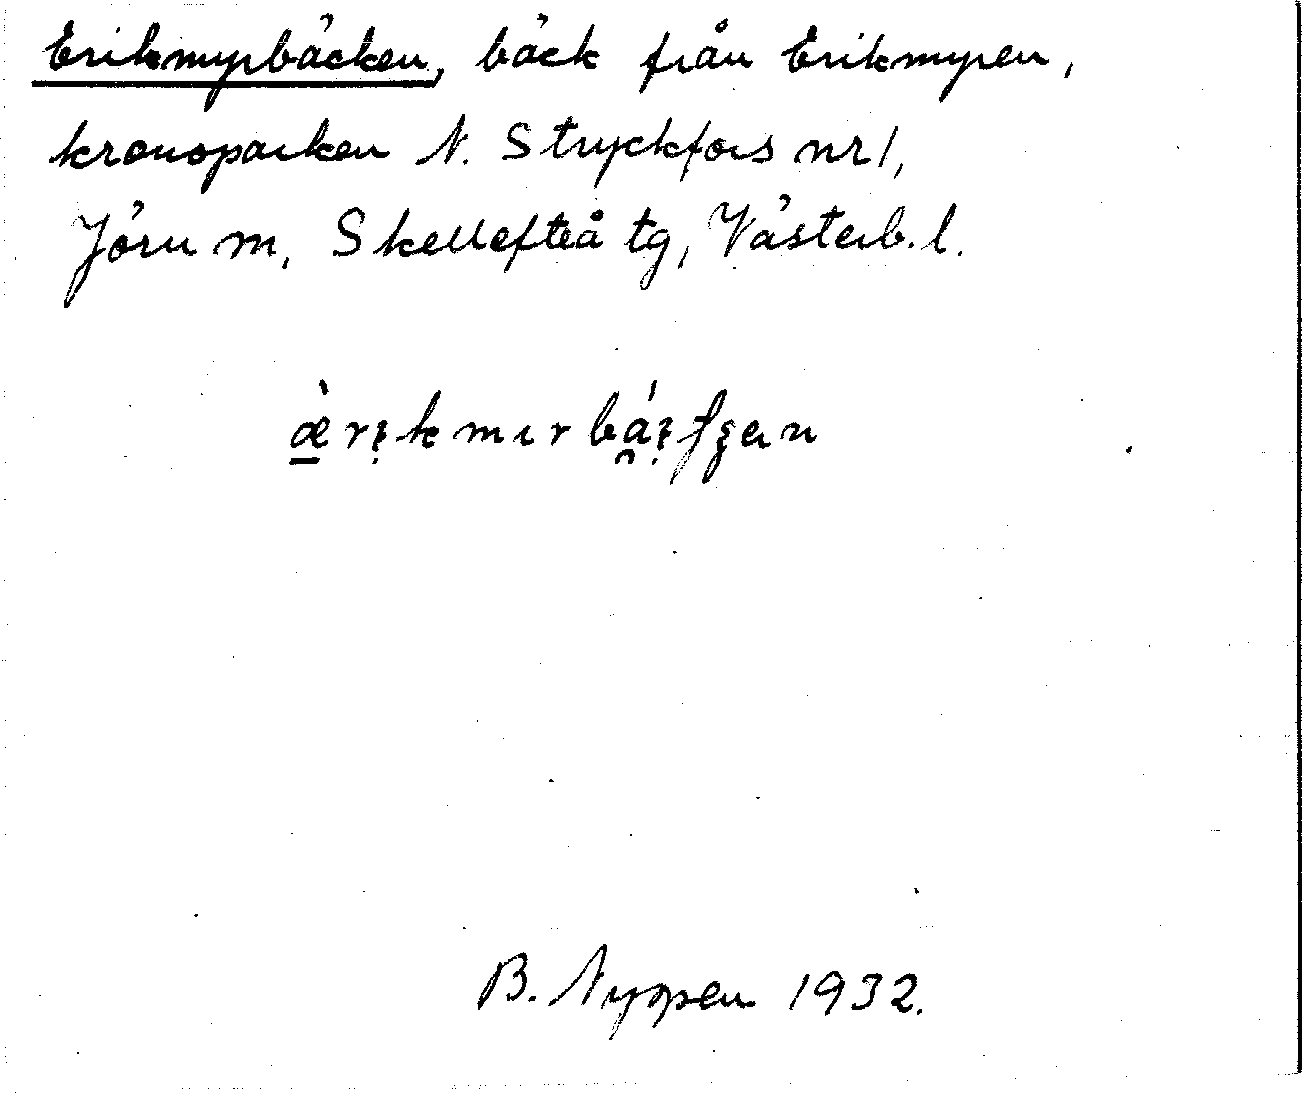 Erikmyrbäcken, bäck från Erikmyren,
kronoparken N. Stryckfors nr 1,
Jörn m, Skellefteå tg, Västerb. l.
B. Nyppen 1932.